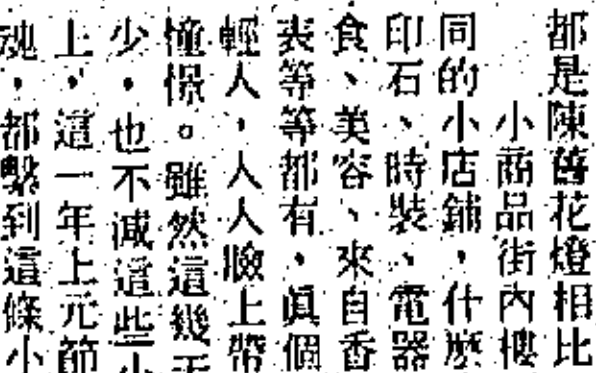 都是陳舊花燈相比
小商品街內樓
同的小店鋪，什麼
印石、時裝、電器
食、美容、來自香
表等等都有，眞個
輕人，人人臉上帶
憧憬。雖然這幾天
少，也不減這些小
上，這一年上元節
魂，都繫到這條小